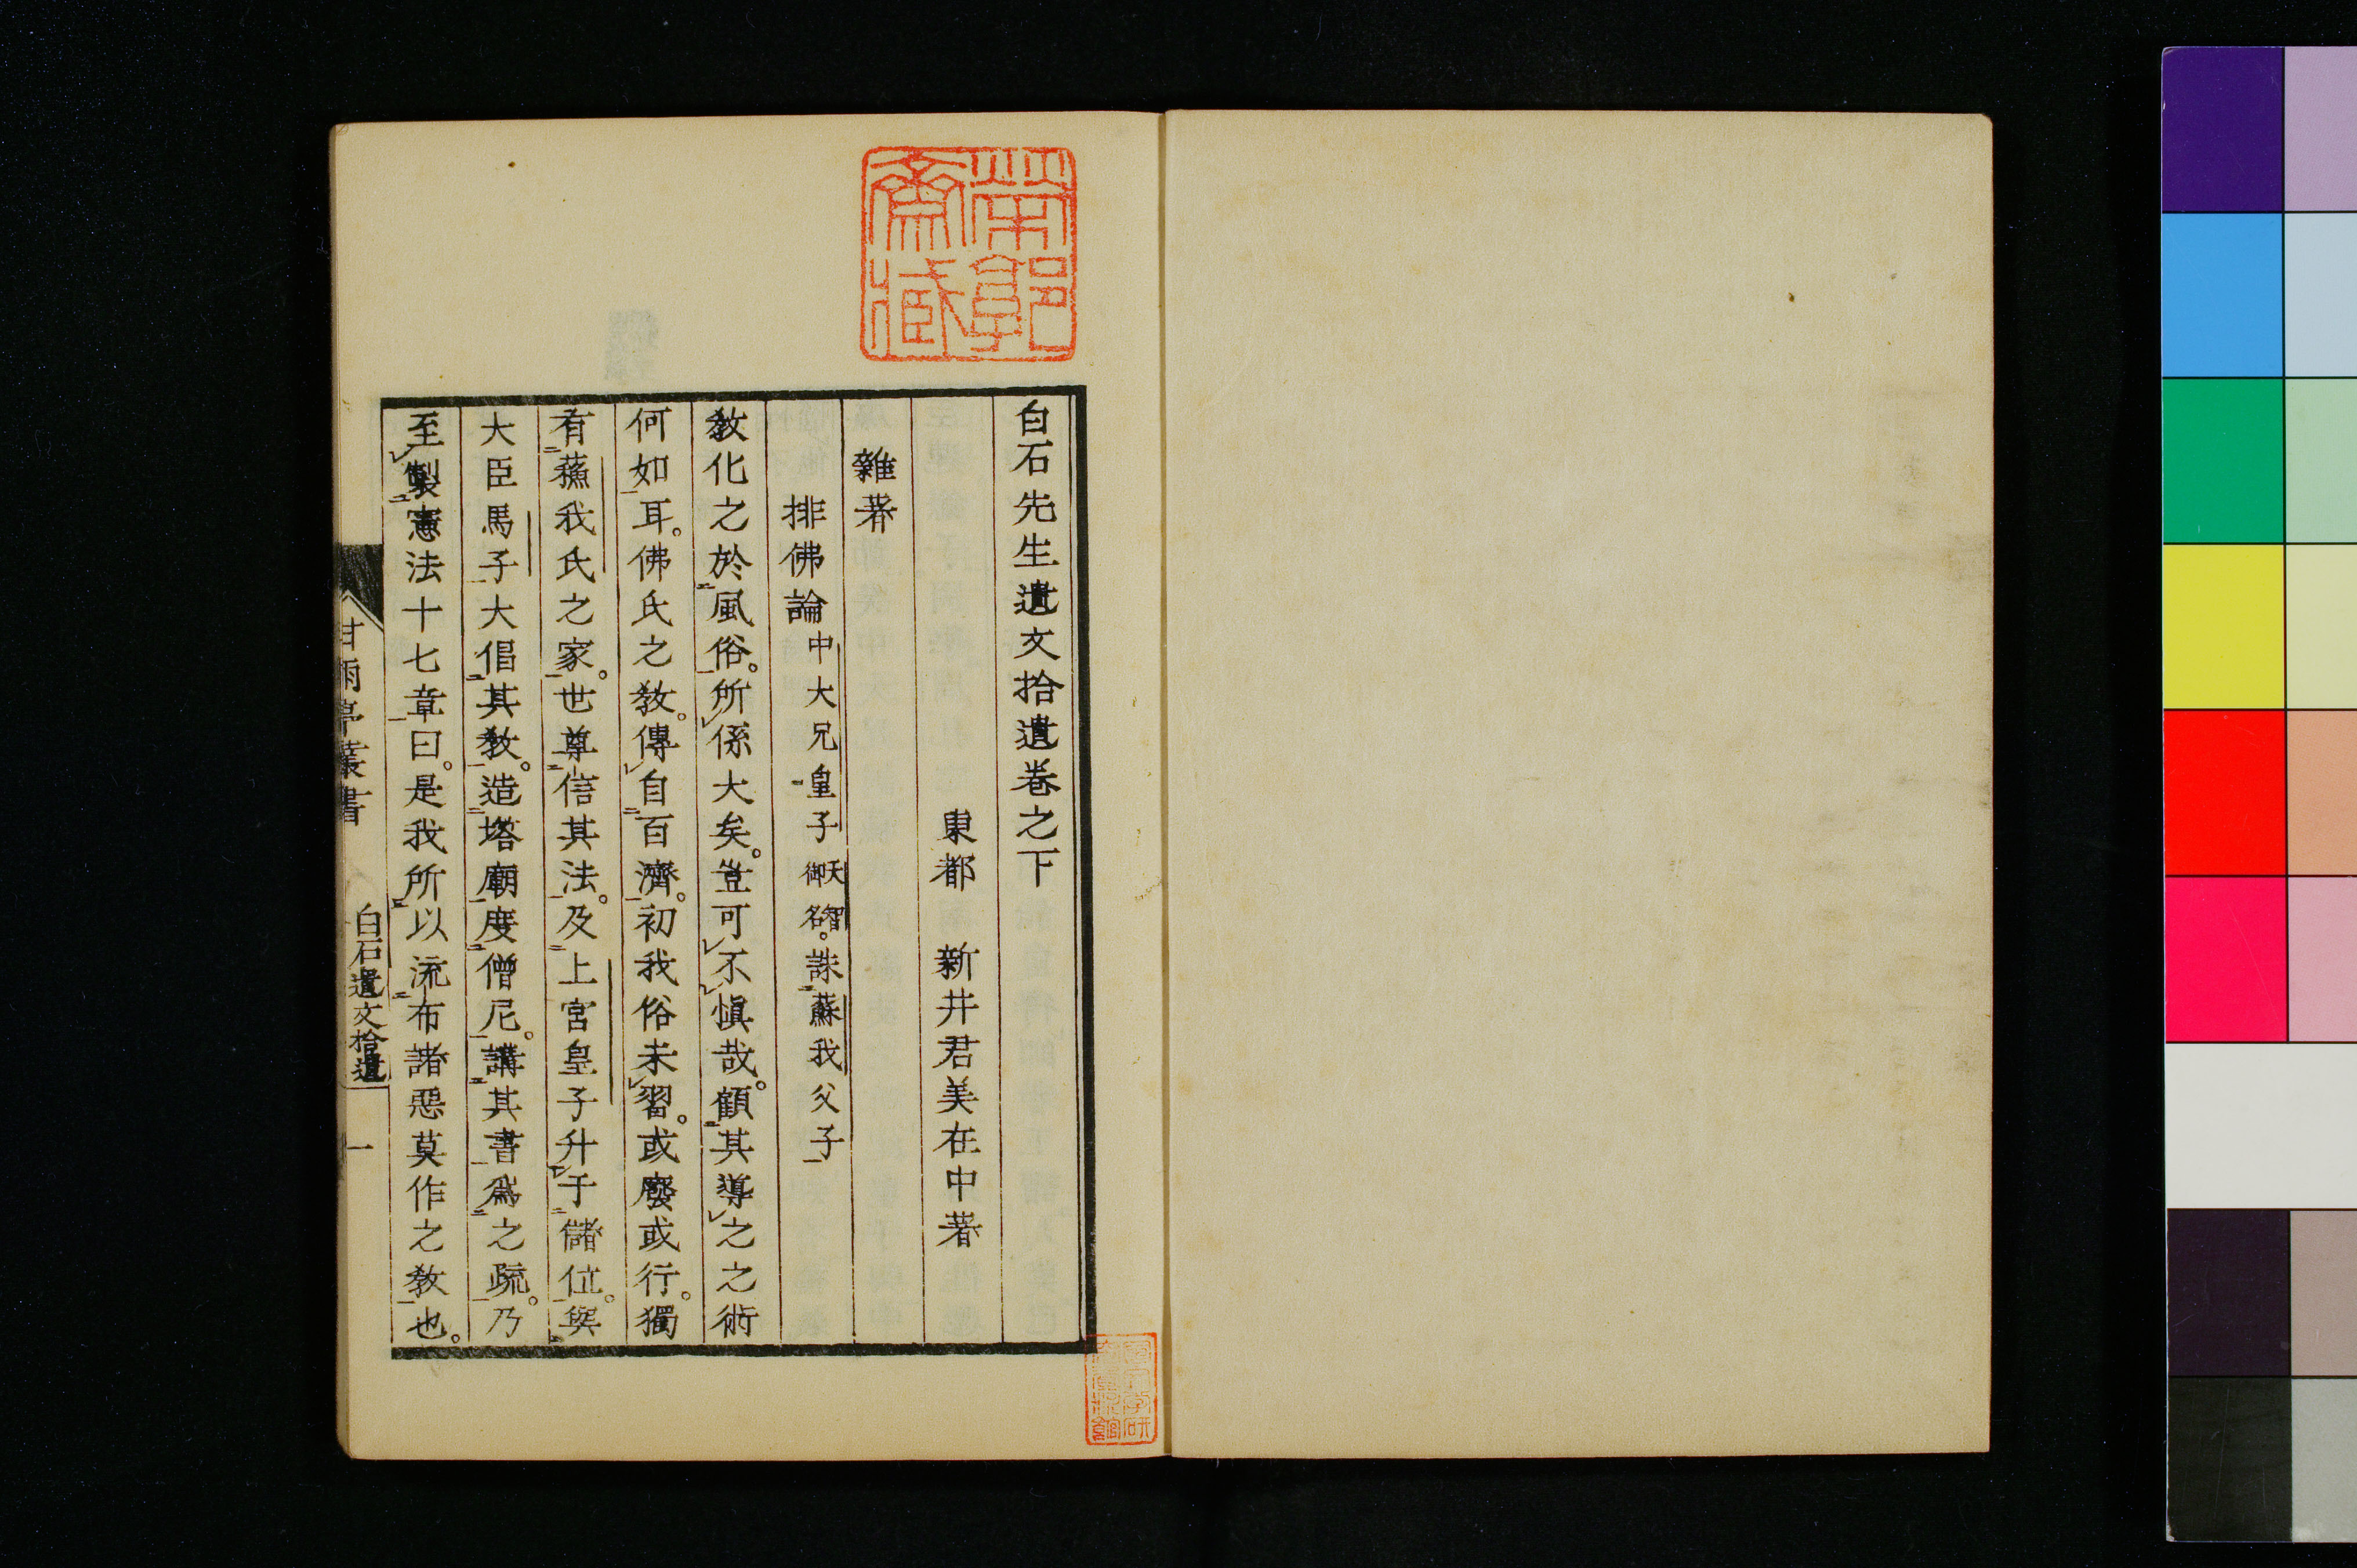 白石先生遺文拾遺卷之下
東都　新井君美在中著
雜著
排佛論中大兄皇子天智御名。誅蘇我父子
敎化之於風俗。所係大矣。豈可不愼哉。顧其導之之術
何如耳。佛氏之敎。傳自百濟。初我俗未習。或廢或行。獨
有蘓我氏之家。世尊信其法。及上宮皇子升于儲位。與
大臣馬子大倡其敎。造塔廟度僧尼。講其書爲之疏。乃
至製憲法十七章曰。是我所以流布諸惡莫作之敎也。
甘雨亭叢書
白石遺文拾遺
一